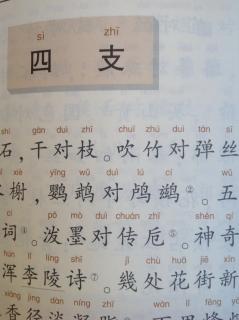 sì zhī
四 支
shí gàn duì zhī chuī zhú duì tán sī
石，干对枝。吹竹对弹丝
xiè yīng wǔ duì lú cí
榭，鹦鹉对鸬鹚②。五
pō mò duì chuán zhī shén qí
词④。泼墨对传卮⑤。神奇
jǐ chù huā jiē xīn
浑李陵诗⑦。几处花街新
xiāng jìng dàn wàn lǐ fēng
香径淡凝脂 万里烽